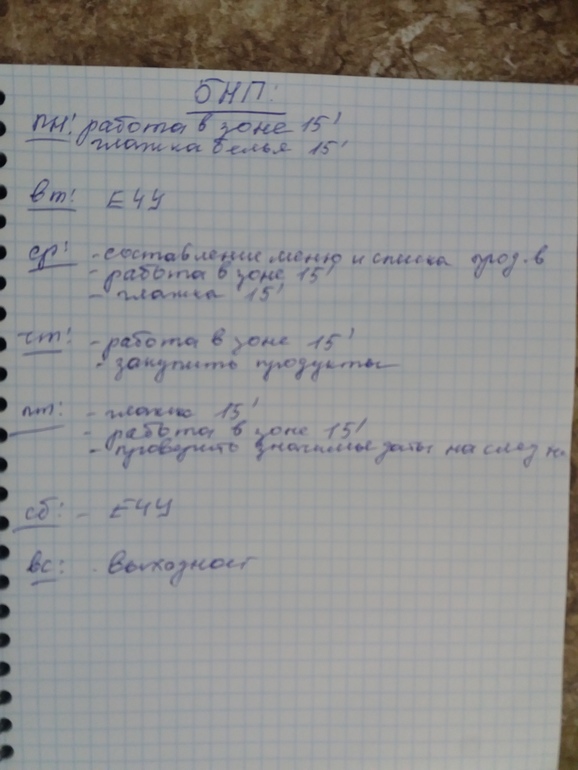 БНП:
пн: работа в зоне 15'
глажка белья 15'
вт: ЕЧУ
ср: - составление меню и списка прод-в
- работа в зоне 15'
- глажка 15'
чт: - работа в зоне 15'
- закупить продукты
пт: - глажка 15'
- работа в зоне 15'
- проверить значимые даты на след н.
сб: - ЕЧУ
вс: - Выходной